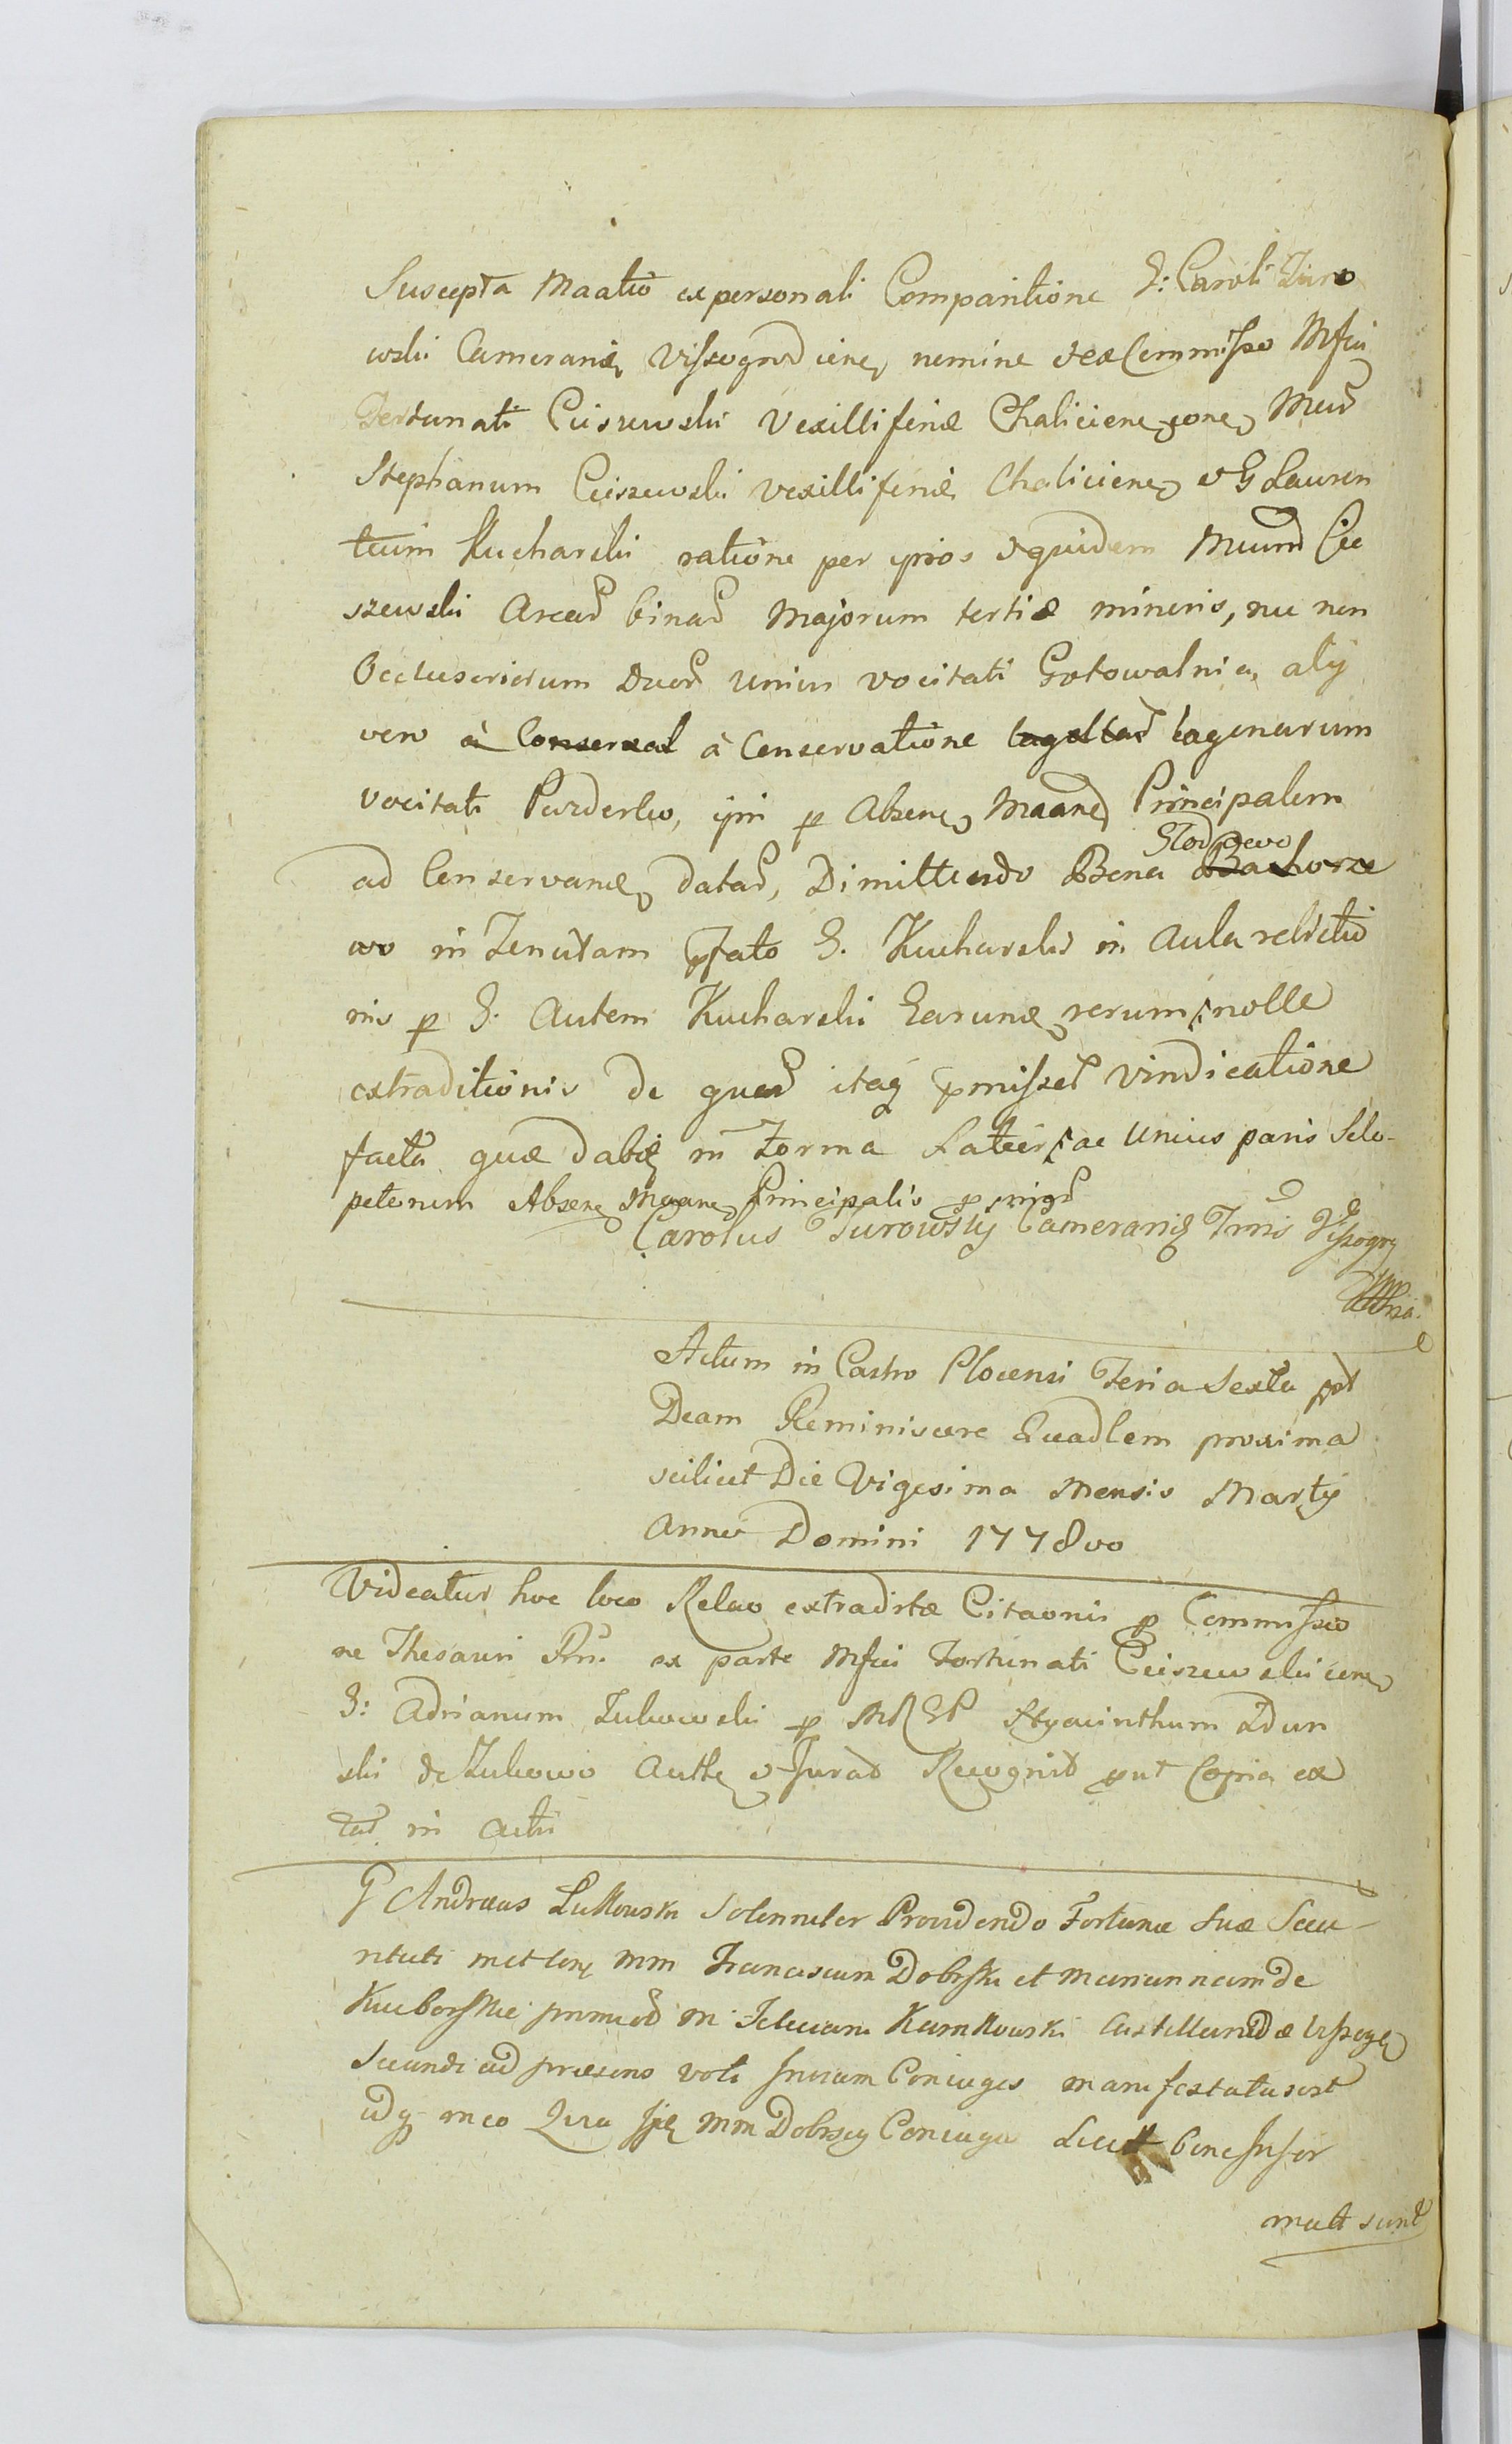 Suscepta Maatio ex personali Comparitione G: Caroli Turo
wski Cameranij Vissogrodiene nemine et ex Commisso Mfici
Fortunati Cieszewski Vexilliferidæ Chaliciene cone Mcum
Stephanum Cieszewski Vexilliferidæ Chaliciene et G Lauren
tium Kucharski ratione per ipsos et quidem Mcum Cie
szewski Arcar binar Majorum tertiæ minoris, nec non
Occlusoriorum Duor unius vocitati Gotowalnia, alij
vero à Conservat à Conservatione lagellar lagenarum
vocitati Puzderko, ipsi p Absene Maane Principalem
ad Conservand datar, Dimittendo Bona Bachorze
wo in Tenutam pfato G. Kucharski in Aula relictio
nis p G. Autem Kucharski Earund rerum nolle
extraditionis de quar itaq pmissor vindicatione
facta quæ dabit in Forma Lateri ac Unius paris Sclo-
petorum Absene Maane Principalis
Carolus Turowsky Cameranij Trris Vissogr
Actum in Castro Plocensi Feria Sexta post
Dcam Reminiscere Quadlem proxima
scilicet Die Vigesima Mensis Martij
Anno Domini 1778vo
Videatur hoc loco Relao extraditæ Citaonis p Commissio
ne Thesauri Rni ex parte Mfici Fortunati Cieszewski cone
G: Adrianum Zukowski p MRGP Hyacinthum Zdun
ski de Zukowo Authe et Jurat Recognit put Copia ex
tat in Actis
G Andreas Lukowski Solenniter Providendo Fortunæ Suæ Secu-
ritati met cone mm Franciscum Dobrski et Mariannam de
Kucborskie primi M Felician Karnkowski Castellanidæ Vissoge
Secundi ad præsens voti Coniuges manifestatus est
idq in eo Quia Ipse mm Dobrscy Coniuges Licet bene
mati sunt